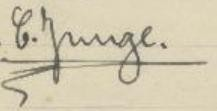 C. Junge.